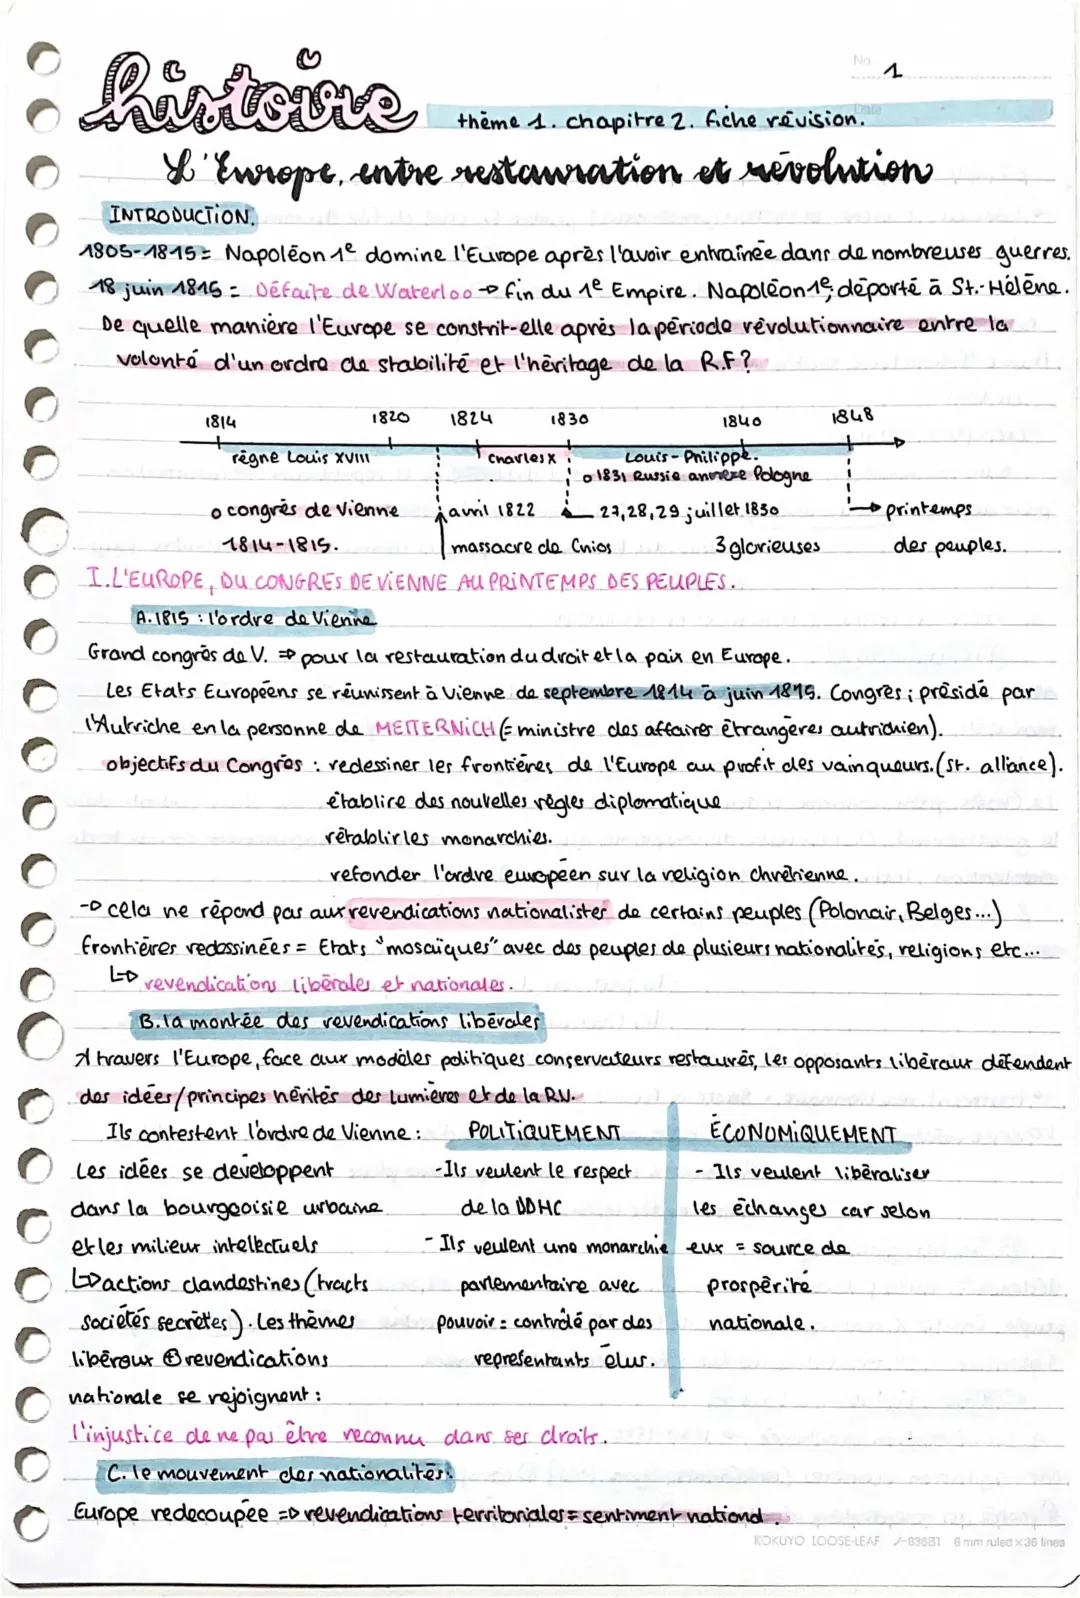 No 1
histoire
Date
thème 1. chapitre 2. fiche révision.
L'Europe, entre restauration et révolution
INTRODUCTION.
1805-1815 = Napoléon 1e domine l'Europe après l'avoir entraînée dans de nombreuses guerres.
18 juin 1815 = Défaite de Waterloo → fin du 1e Empire. Napoléon 1e; déporté à St.-Hélène.
De quelle manière l'Europe se constrit-elle après la période révolutionnaire entre la
volonté d'un ordre de stabilité et l'héritage de la R.F?
1814 1820 1824 1830 1840 1848
règne Louis XVIII charles X Louis-Philippe.
o 1831 Russie annexe Pologne
o congrès de Vienne avril 1822 27, 28, 29 juillet 1830 → printemps
1814-1815. massacre de Chios 3 glorieuses des peuples.
I. L'EUROPE, DU CONGRES DE VIENNE AU PRINTEMPS DES PEUPLES.
A. 1815 : l'ordre de Vienne
Grand congrès de V. ⇒ pour la restauration du droit et la paix en Europe.
Les Etats Européens se réunissent à Vienne de septembre 1814 à juin 1815. Congrès ; présidé par
l'Autriche en la personne de METTERNICH (= ministre des affaires étrangères autrichien).
objectifs du Congrès : redessiner les frontières de l'Europe au profit des vainqueurs. (st. alliance).
établire des nouvelles règles diplomatique
rétablir les monarchies.
refonder l'ordre européen sur la religion chrétienne.
→ cela ne répond pas aux revendications nationalistes de certains peuples (Polonais, Belges...)
frontières redessinées = Etats "mosaïques" avec des peuples de plusieurs nationalités, religions etc...
↳ revendications libérales et nationales.
B. la montée des revendications libérales
A travers l'Europe, face aux modèles politiques conservateurs restaurés, les opposants libéraux défendent
des idées/principes hérités des lumières et de la RV.
Ils contestent l'ordre de Vienne : POLITIQUEMENT ÉCONOMIQUEMENT
Les idées se développent - Ils veulent le respect - Ils veulent libéraliser
dans la bourgeoisie urbaine de la DDHC les échanges car selon
et les milieux intellectuels - Ils veulent une monarchie eux = source de
↳ actions clandestines (tracts parlementaire avec prospérité
sociétés secrètes). Les thèmes pouvoir = contrôlé par des nationale.
libéraux ⊕ revendications représentants élus.
nationale se rejoignent :
l'injustice de ne pas être reconnu dans ses droits.
C. le mouvement des nationalités.
Europe redecoupée ⇒ revendications territoriales = sentiment national.
KOKUYO LOOSE-LEAF ノ-836BT 6 mm ruled × 36 lines